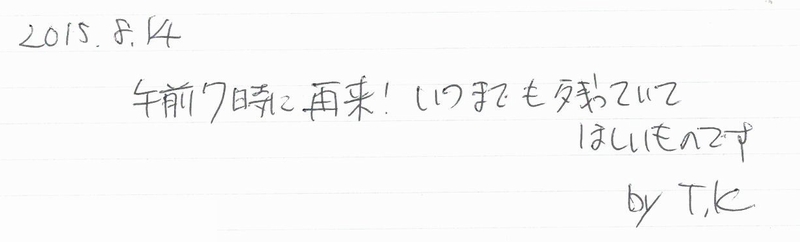 2015.8.14
午前7時に再来！いつまでも残っていて
ほしいものです
by T,K